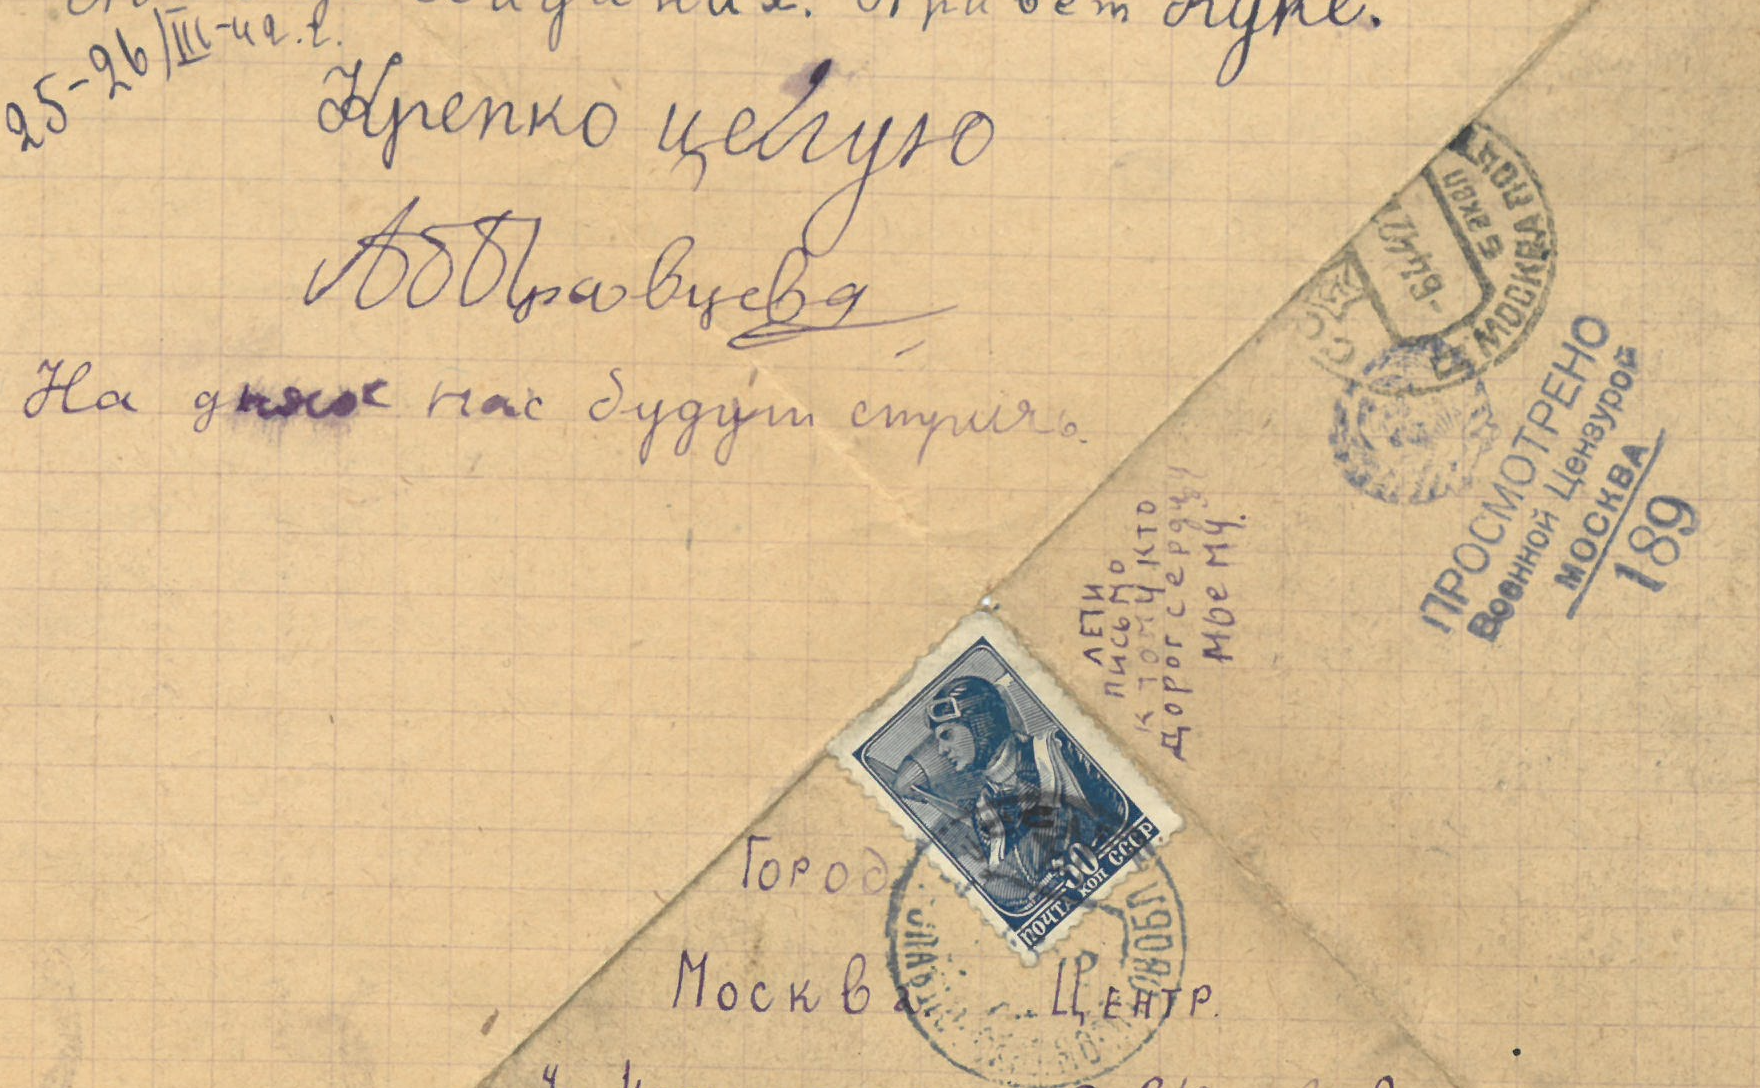 Привет Куке.
25-26/III-42.г.
Крепко целую
АБПравцева
На днях нас будут стричь.
МОСКВА ПОЧТ
6 эксп
-6 4 42
ПРОСМОТРЕНО
Военной Цензурой
МОСКВА
189
ЛЕТИ
ПИСЬМО
К ТОМУ КТО
ДОРОГ СЕРДЦУ
МОЕМУ.
30
ПОЧТА КОП СССР
ГОРОД
МОСКВА ЦЕНТР.